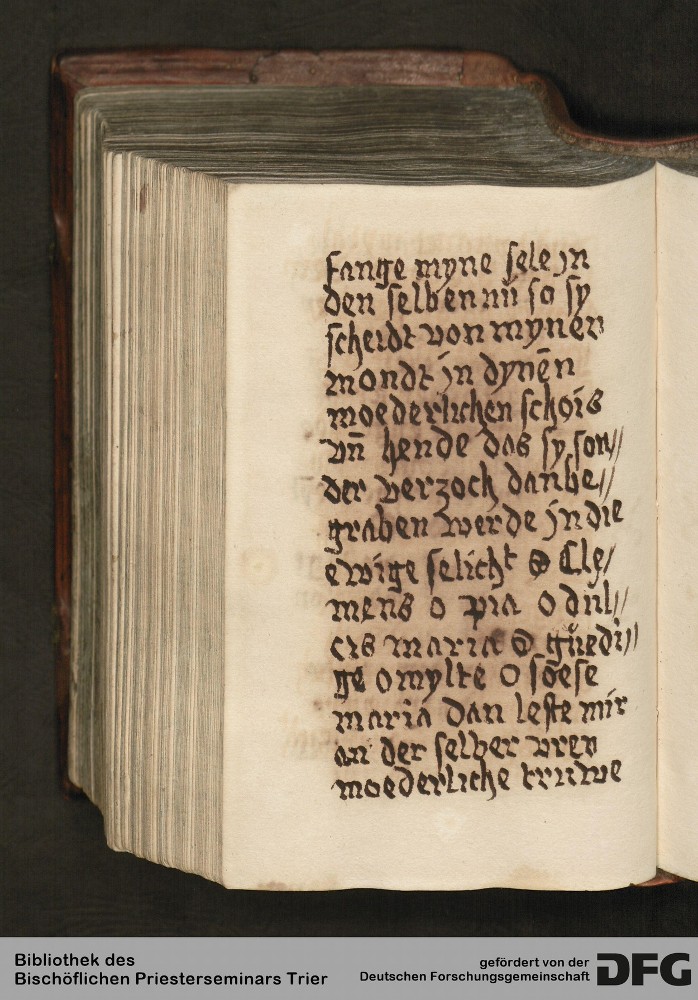 fange myne sele jn
den selben nü so sy
scheidt von mynen
mondt jn dynen̄
moederlichen schois
vn̄ hende das sy son//
der verzoch dan be//
graben werde jn die
ewige selicht O Cle/
mens o pia o dul//
cis maria O guedi//
ge o mylte O soese
maria dan leste mir
an der selber vren
moederliche truwe
Bibliothek des
Bischöflichen Priesterseminars Trier
gefördert von der
Deutschen Forschungsgemeinschaft
DFG